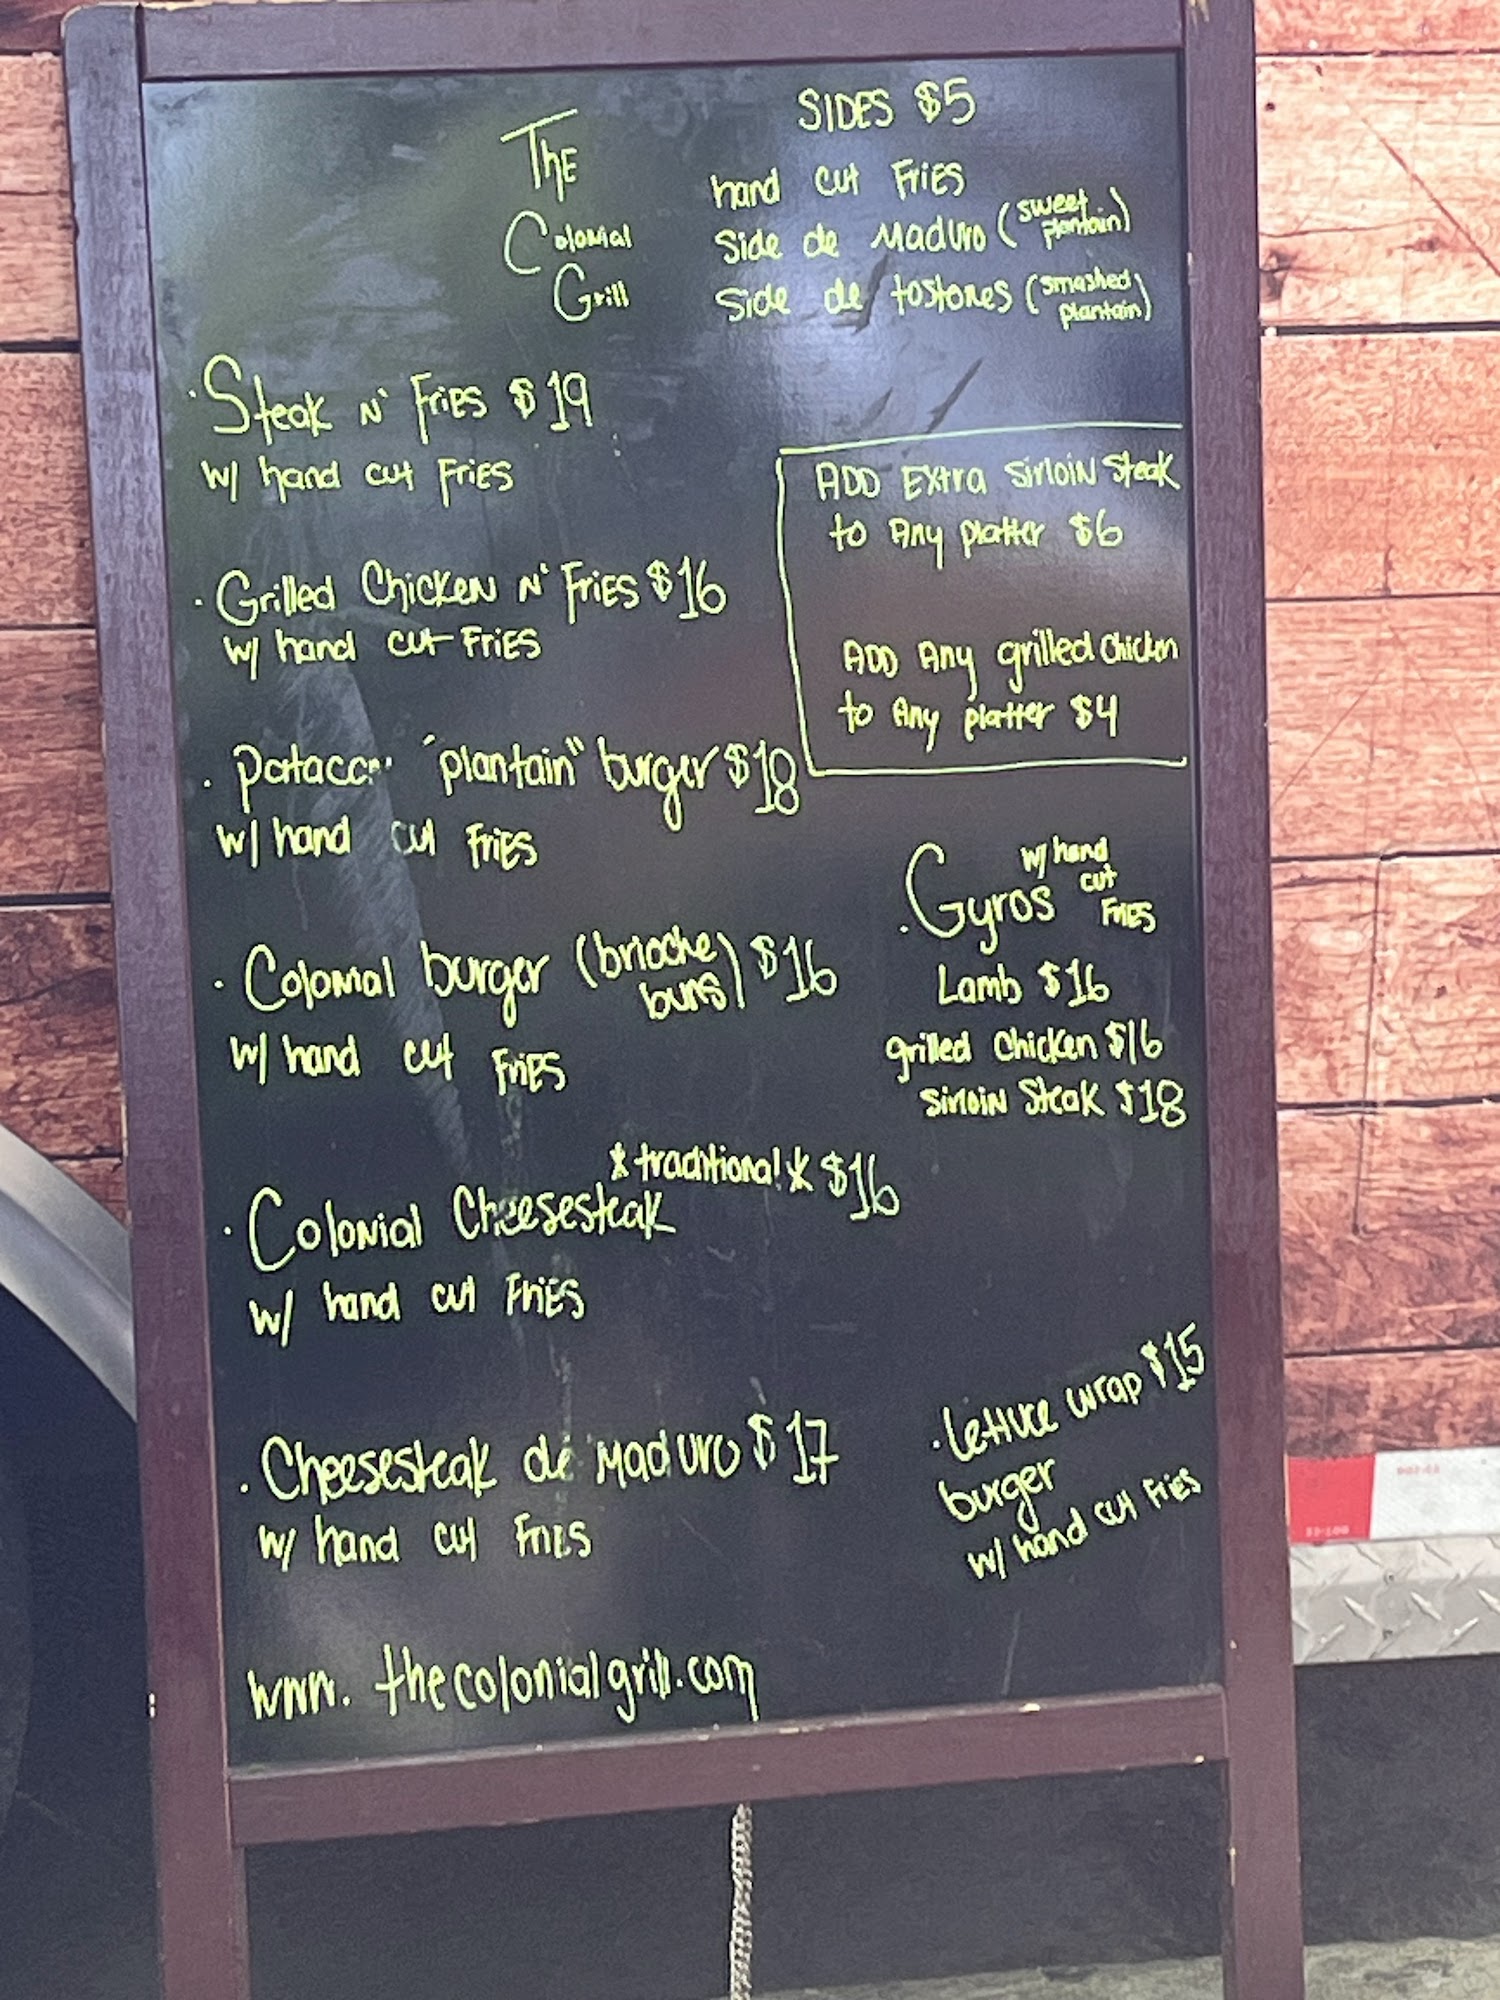 The
Colonial
Grill
SIDES $5
hand cut Fries
Side de Maduro (sweet plantain)
Side de tostones (smashed plantain)
· Steak N' Fries $19
w/ hand cut Fries
· Grilled Chicken N' Fries $16
w/ hand cut Fries
· Patacon "plantain" burger $18
w/ hand cut Fries
· Colonial burger (brioche buns) $16
w/ hand cut Fries
· Colonial Cheesesteak *traditional* $16
w/ hand cut Fries
· Cheesesteak de Maduro $17
w/ hand cut Fries
ADD Extra Sirloin Steak
to Any platter $6
ADD Any grilled chicken
to Any platter $4
· Gyros w/ hand cut Fries
Lamb $16
grilled Chicken $16
Sirloin Steak $18
· lettuce wrap $15
burger
w/ hand cut Fries
www.thecolonialgrill.com